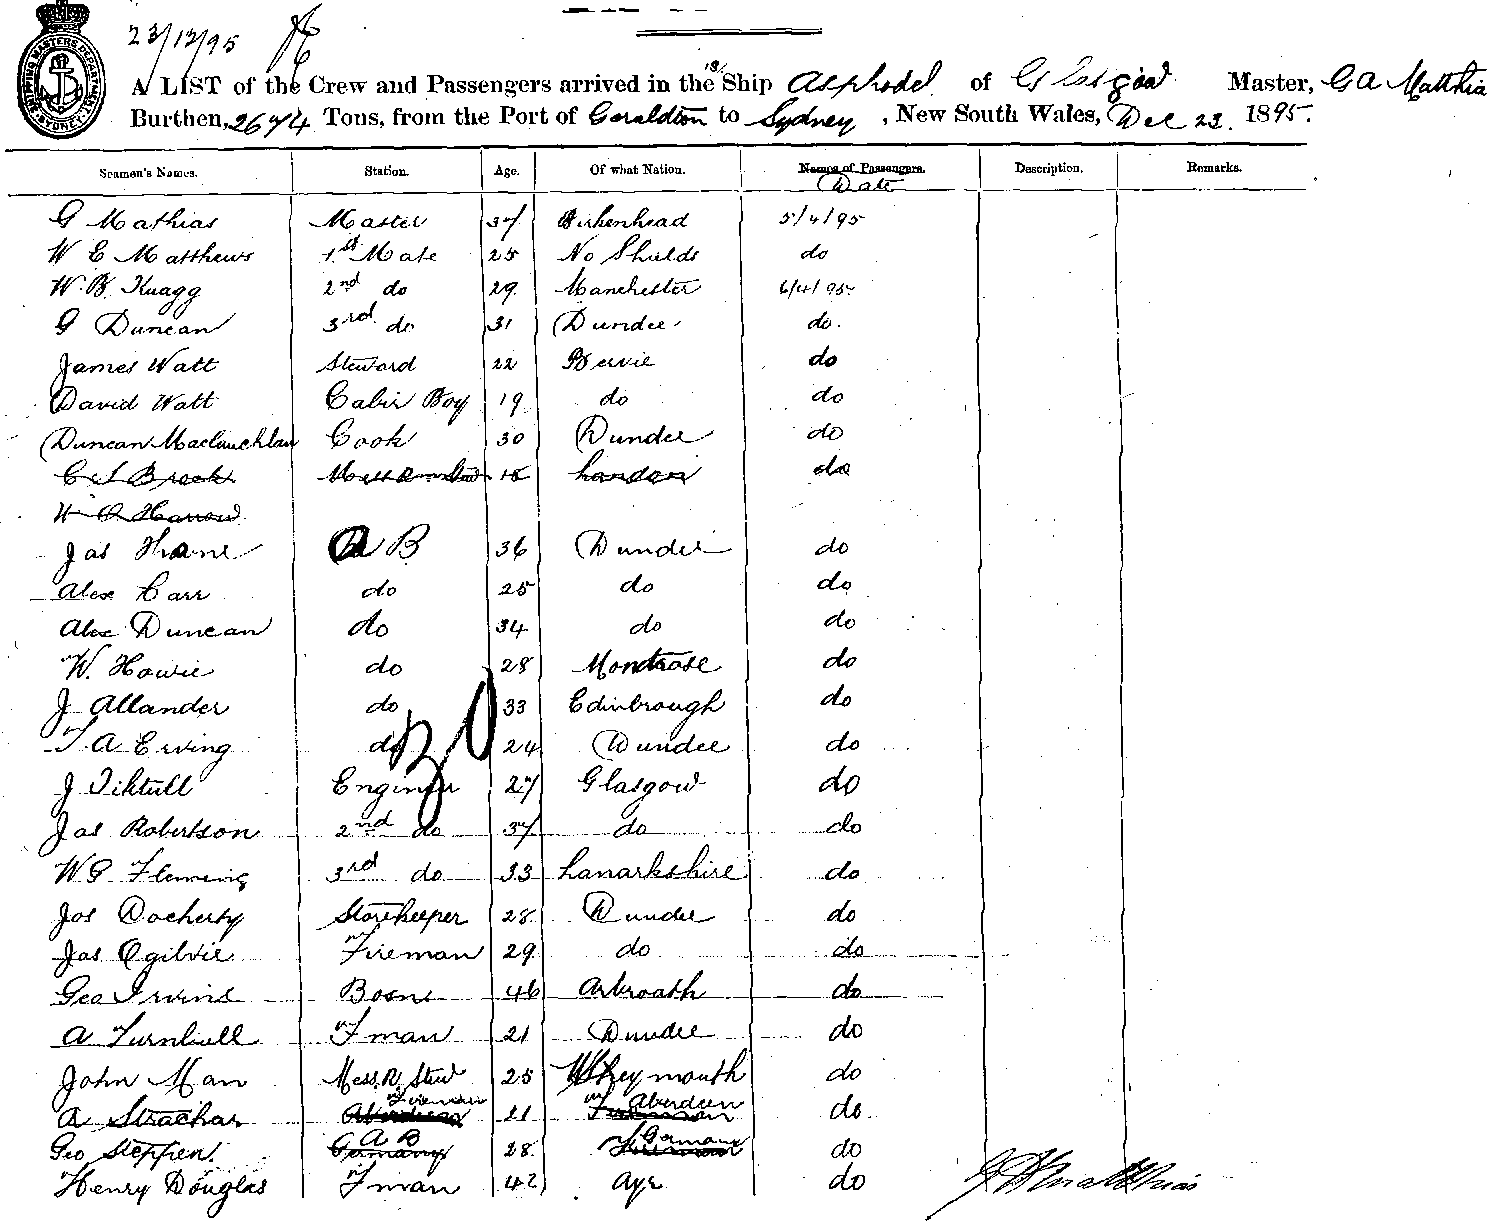 SHIPPING MASTERS DEPARTMENT SYDNEY
23/12/95
A LIST of the Crew and Passengers arrived in the Ship Asphodel of Glasgow Master, G A Matthia
Burthen, 2674 Tons, from the Port of Geraldton to Sydney, New South Wales, Dec 23. 1895.
Seamen's Names. Station. Age. Of what Nation. Names of Passengers. Description. Remarks.
Date
G Mathias Master 37 Birkenhead 5/4/95
W E Matthews 1st Mate 25 No Shields do
W. B. Knagg 2nd do 29 Manchester 6/4/95
G Duncan 3rd do 31 Dundee do.
James Watt Steward 22 Bervie do
David Watt Cabin Boy 19 do do
Duncan Maclauchlan Cook 30 Dundee do
C A Brook 18 London do
W Harrow
Jas Thane A B 36 Dundee do
Alex Carr do 25 do do
Alex Duncan do 34 do do
W. Howie do 28 Montrose do
J Allander do 33 Edinbrough do
T. A Erving do 24 Dundee do
J Engineer 27 Glasgow do
Jas Robertson 2nd do 37 do do
W G Fleming 3rd do 33 Lanarkshire do
Jos Docherty Storekeeper 28 Dundee do
Jas Ogilvie Fireman 29 do do
Geo Irvine Bosns 46 Arbroath do
A Turnbull Fman 21 Dundee do
John Man Mess. R. Stew 25 Wheymouth do
A Strachan Aberdeen Fireman 21 Fireman Aberdeen do
Geo Steffen. Germany A B 28 Fireman Germany do
Henry Douglas Fman 42 Ayr do